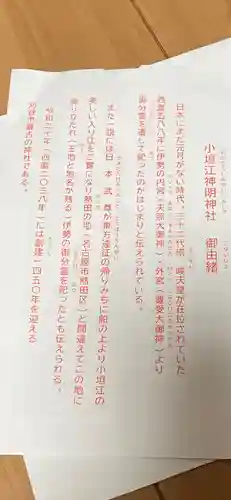 小垣江神明神社　御由緒
日本にまだ元号がない時代、三十二代崇峻天皇が在位されていた
西暦五八八年に伊勢の内宮（天照大御神）・外宮（豊受大御神）より
御分霊を遷して祀ったのがはじまりと伝えられている。
また一説には日本武尊が東方遠征の帰りみちに船の上より小垣江の
美しい入り江をご覧になり熱田の地（名古屋市熱田区）と間違えてこの地に
降りたたれ（王地と地名が残る）伊勢の御分霊を祀ったとも伝えられる。
令和二十年（西暦二〇三八年）には創建一四五〇年を迎える
刈谷市最古の神社である。